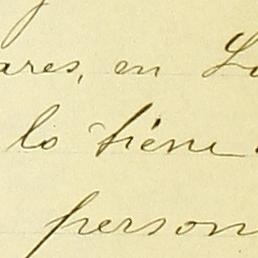 ares, en
lo tiene
person